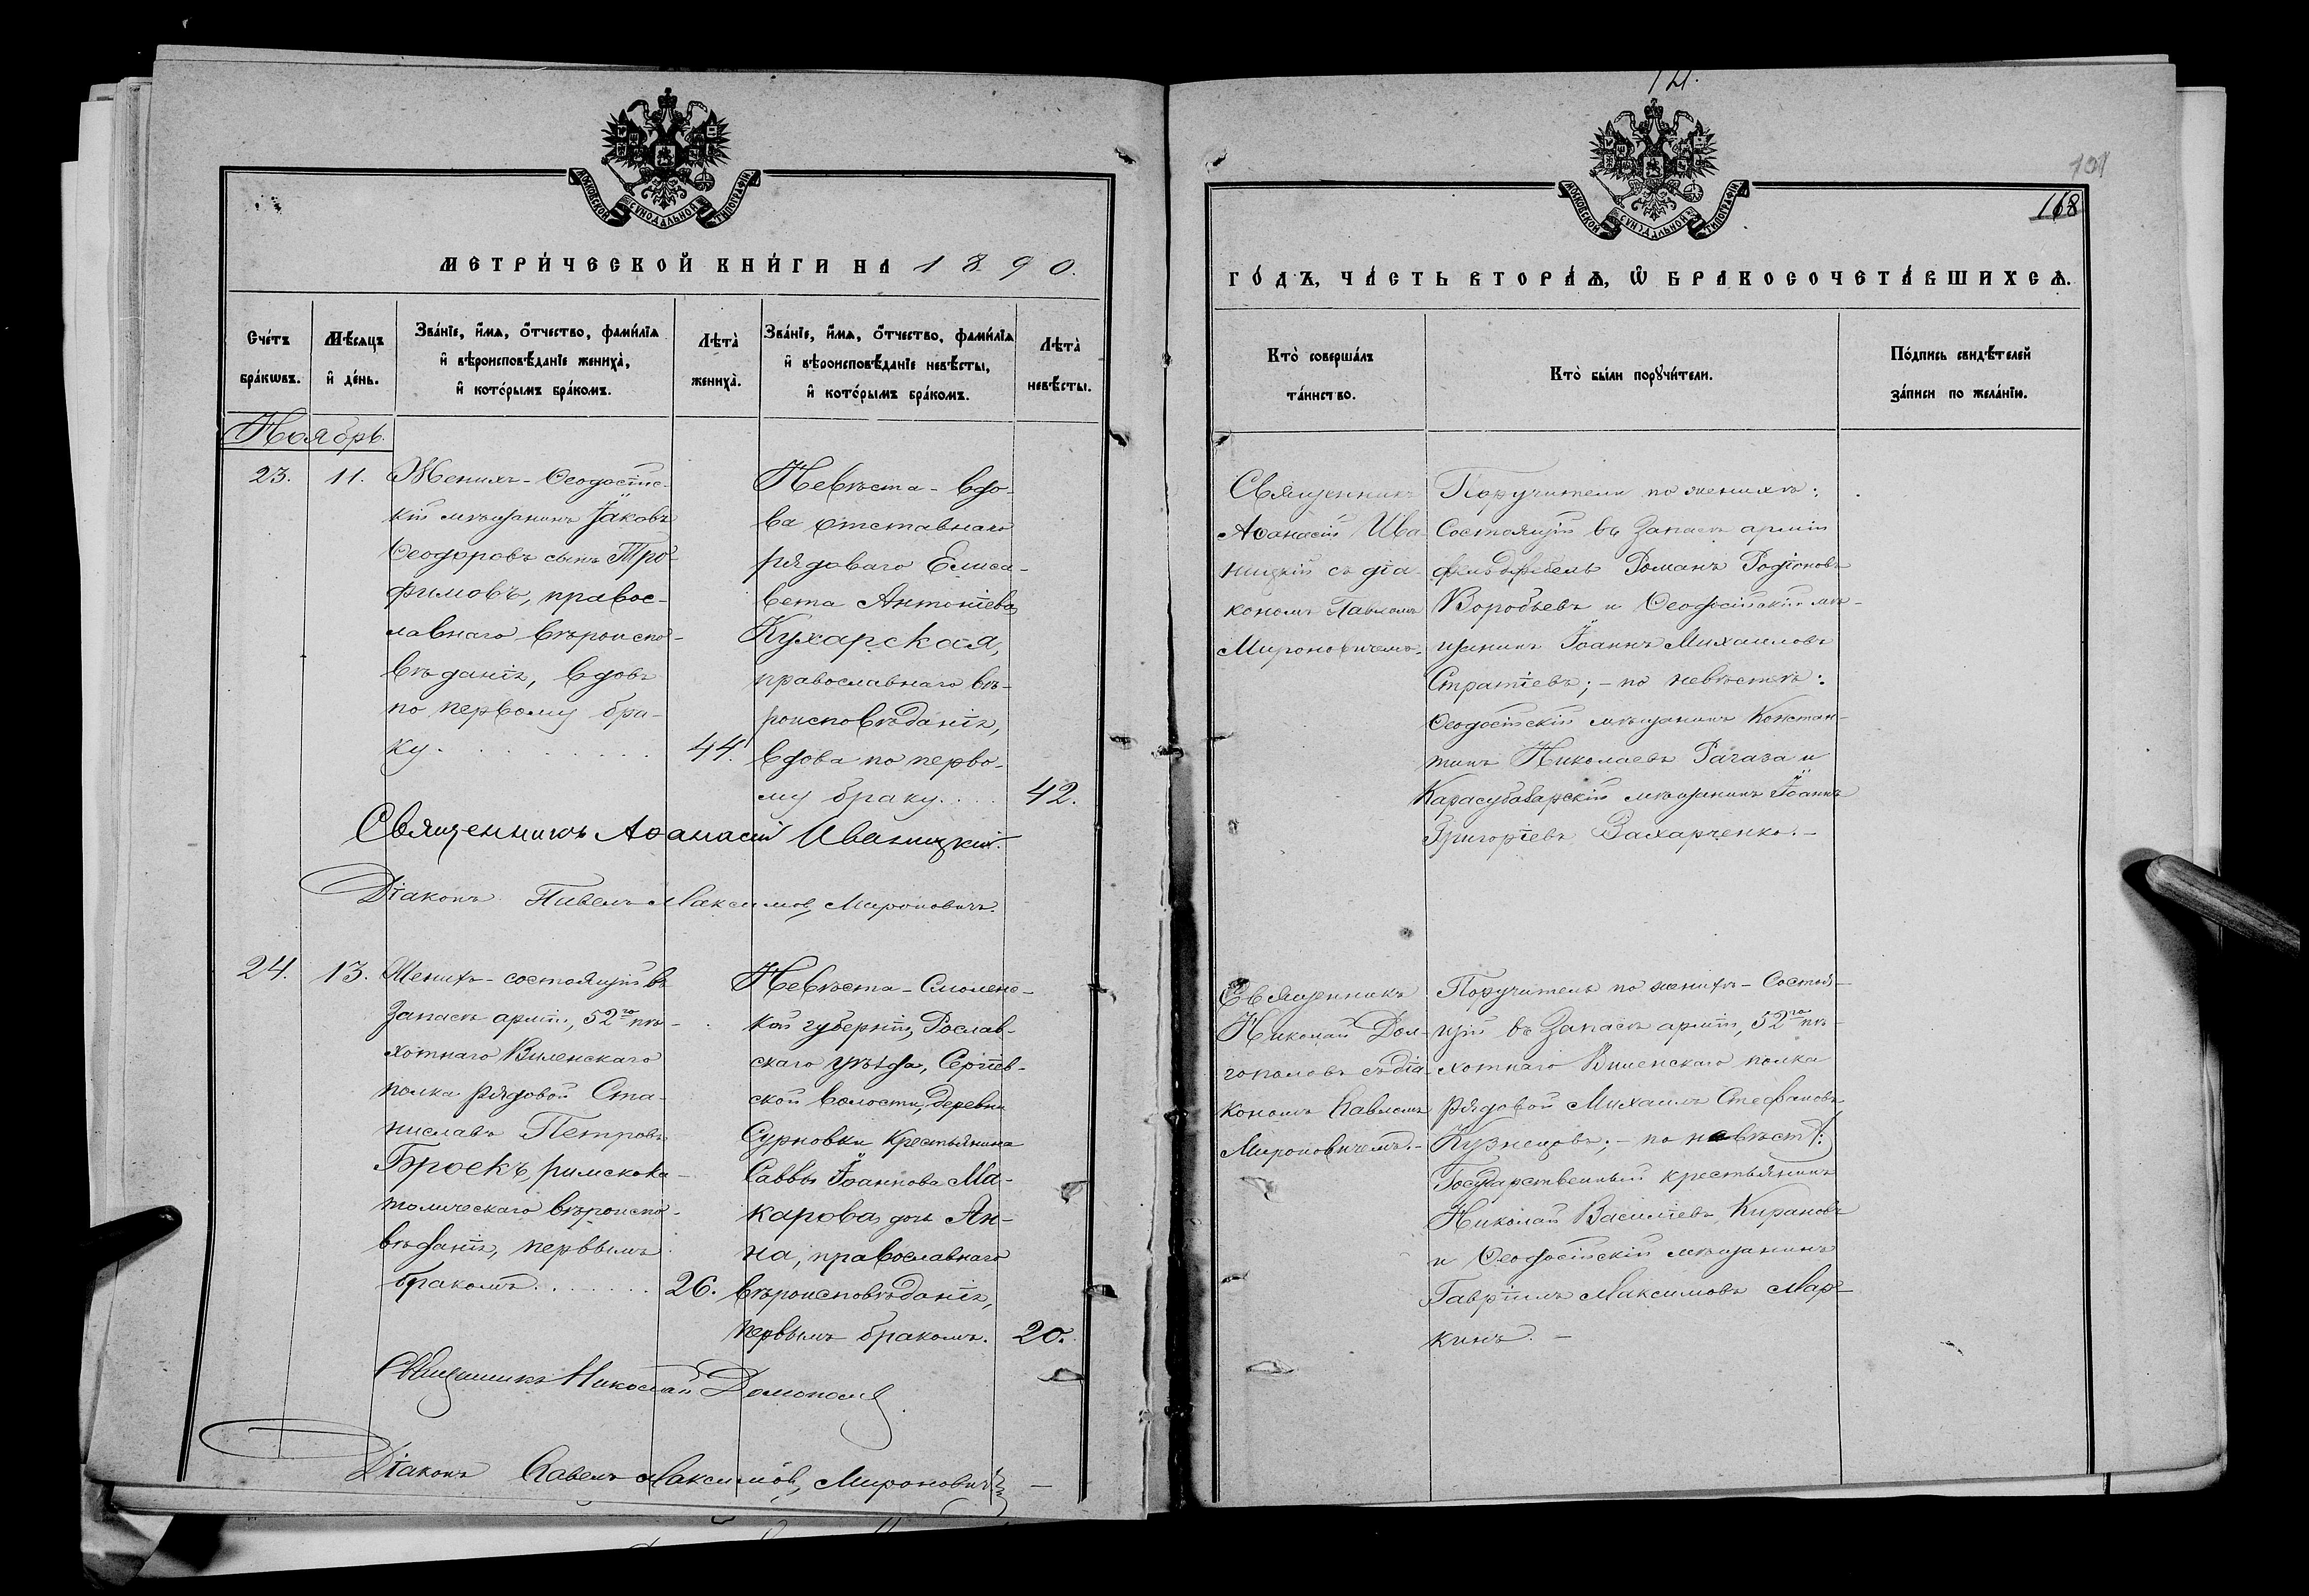 МОСКОВСКОЙ СѴНОДАЛЬНОЙ ТИПОГРАФІИ
МЕТРИ́ЧЕСКОЙ КНИ́ГИ НА 1890.
Сче́тъ бра́кωвъ.
Мѣ́сяцъ и҆ де́нь.
Зва́нїе, и҆́мѧ, ѻ҆́тчество, фами́лїѧ
и҆ вѣроисповѣ́данїе жениха̀,
и҆ кото́рымъ бра́комъ.
Лѣта̀ жениха̀.
Зва́нїе, и҆́мѧ, ѻ҆́тчество, фами́лїѧ
и҆ вѣроисповѣ́данїе невѣ́сты,
и҆ кото́рымъ бра́комъ.
Лѣта̀ невѣ́сты.
Ноябрь.
23.
11.
Женихъ - Ѳеодосійс-
кій мѣщанинъ Іаковъ
Ѳеодоровъ сынъ Тро-
фимовъ, правос-
лавнаго вѣроиспо-
вѣданія, вдовъ
по первому бра-
ку.
44.
Невѣста - вдо-
ва отставнаго
рядоваго Елиса-
вета Антоніева
Кухарская,
православнаго вѣ-
роисповѣданія,
вдова по перво-
му браку.
42.
Священникъ Аѳанасій Иваницкій.
Діаконъ Павелъ Максимов. Мироновичъ.
24.
13.
Женихъ - состоящій въ
запасѣ арміи, 52го пѣ-
хотнаго Виленскаго
полка рядовой Ста-
ниславъ Петровъ
Броекъ, римскока-
толическаго вѣроиспо-
вѣданія, первымъ
бракомъ.
26.
Невѣста - Смоленс-
кой губерніи, Рослав-
скаго уѣзда, Сергіев-
ской волости, деревни
Сурновки крестьянина
Саввы Іоаннова Ма-
карова дочь Ан-
на, православнаго
вѣроисповѣданія,
первымъ бракомъ.
20.
Священникъ Николай
Діаконъ Павелъ Максимов. Мироновичъ
121.
101
168
МОСКОВСКОЙ СѴНОДАЛЬНОЙ ТИПОГРАФІИ
ГО́ДЪ, ЧА́СТЬ ВТОРА́Ѧ, Ѡ҆ БРАКОСОЧЕТА́ВШИХСѦ.
Кто̀ соверша́лъ
та́инство.
Кто̀ бы́ли порꙋчи́тели.
По́дпись свидѣ́телей
за́писи по жела́нїю.
Священникъ
Аѳанасій Ива-
ницкій съ діа-
кономъ Павломъ
Мироновичемъ.
Поручители по женихѣ:
Состоящій въ запасѣ арміи
фельдфебель Романъ Родіоновъ
Воробьевъ и Ѳеодосійскій мѣ-
щанинъ Іоаннъ Михаиловъ
Стратіевъ; - по невѣстѣ:
Ѳеодосійскій мѣщанинъ Констан-
тинъ Николаевъ Рагаза и
Карасубазарскій мѣщанинъ Іоаннъ
Григоріевъ Захарченко. -
Священникъ
Николай Дол-
гополовъ съ діа-
кономъ Павломъ
Мироновичемъ. -
Поручители по женихѣ - Состоя-
щій въ запасѣ арміи, 52го пѣ-
хотнаго Виленскаго полка
рядовой Михаилъ Стефановъ
Кузнецовъ; - по невѣстѣ:
Государственный крестьянинъ
Николай Василіевъ Кирановъ
и Ѳеодосійскій мѣщанинъ
Гавріилъ Максимовъ Мар-
кинъ. -